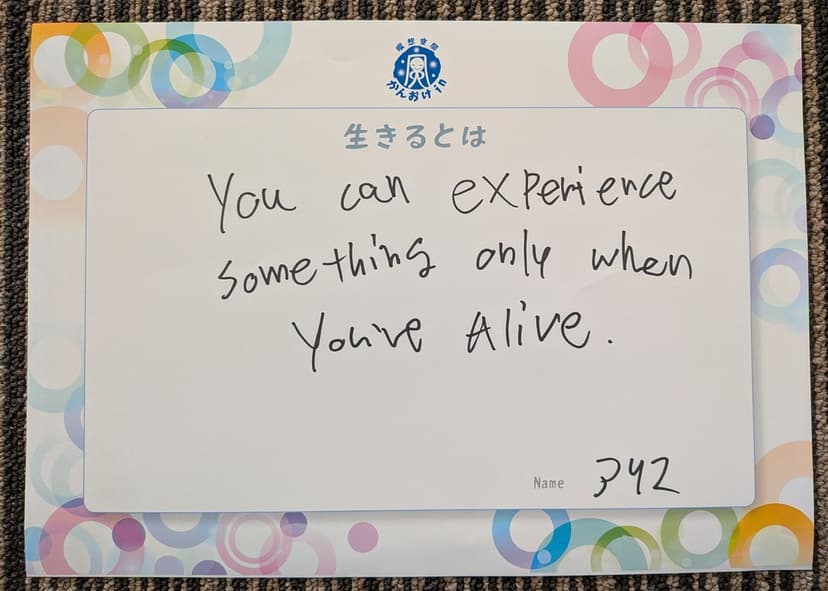 瞑想空間
かんおけin
生きるとは
You can experience
something only when
You've Alive.
Name 342